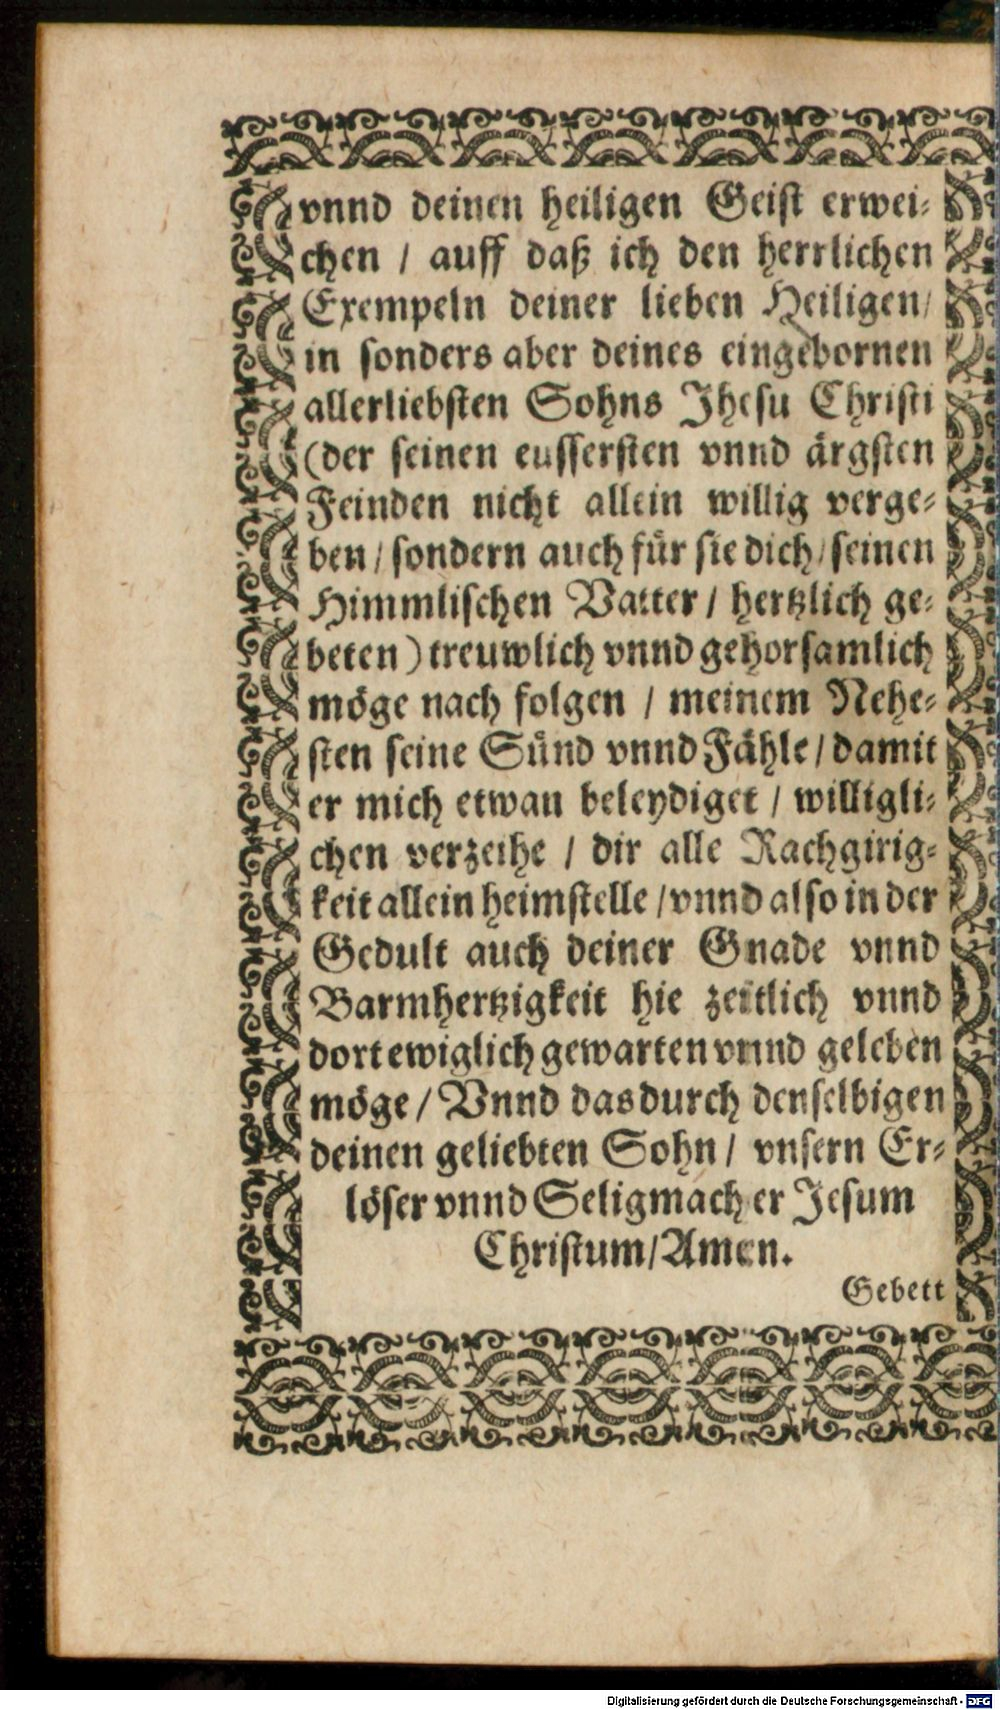 vnnd deinen heiligen Geist erwei⸗
chen / auff daß ich den herrlichen
Exempeln deiner lieben Heiligen/
in sonders aber deines eingebornen
allerliebsten Sohns Jhesu Christi
(der seinen eussersten vnnd ärgsten
Feinden nicht allein willig verge⸗
ben / sondern auch für sie dich / seinen
Himmlischen Vatter / hertzlich ge⸗
beten) treuwlich vnnd gehorsamlich
möge nach folgen / meinem Nehe⸗
sten seine Sünd vnnd Fähle / damit
er mich etwan beleydiget / willigli⸗
chen verzeihe / dir alle Rachgirig⸗
keit allein heimstelle / vnnd also in der
Gedult auch deiner Gnade vnnd
Barmhertzigkeit hie zeitlich vnnd
dort ewiglich gewarten vnnd geleben
möge / Vnnd das durch denselbigen
deinen geliebten Sohn / vnsern Er⸗
löser vnnd Seligmacher Jesum
Christum/Amen.
Gebett
Digitalisierung gefördert durch die Deutsche Forschungsgemeinschaft - DFG